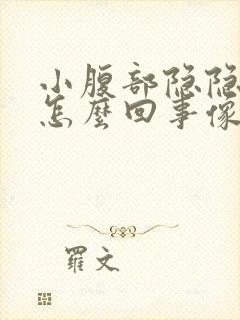 小腹部隐隐
怎麼回事像
羅文